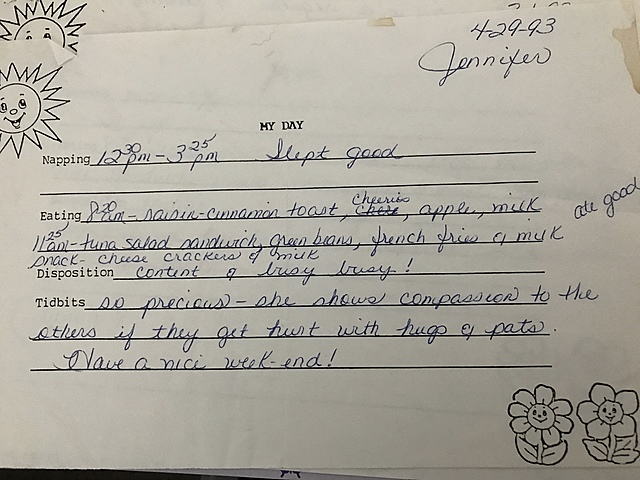 4-29-93
Jennifer
MY DAY
Napping 12 30 pm - 3 25 pm Slept good
Eating 8 30 am - raisin-cinnamon toast, Cheerios, apple, milk ate good
11 25 am - tuna salad sandwich, green beans, french fries & milk
snack - cheese crackers & milk
Disposition content & busy busy!
Tidbits so precious - she shows compassion to the
others if they get hurt with hugs & pats.
Have a nici week-end!